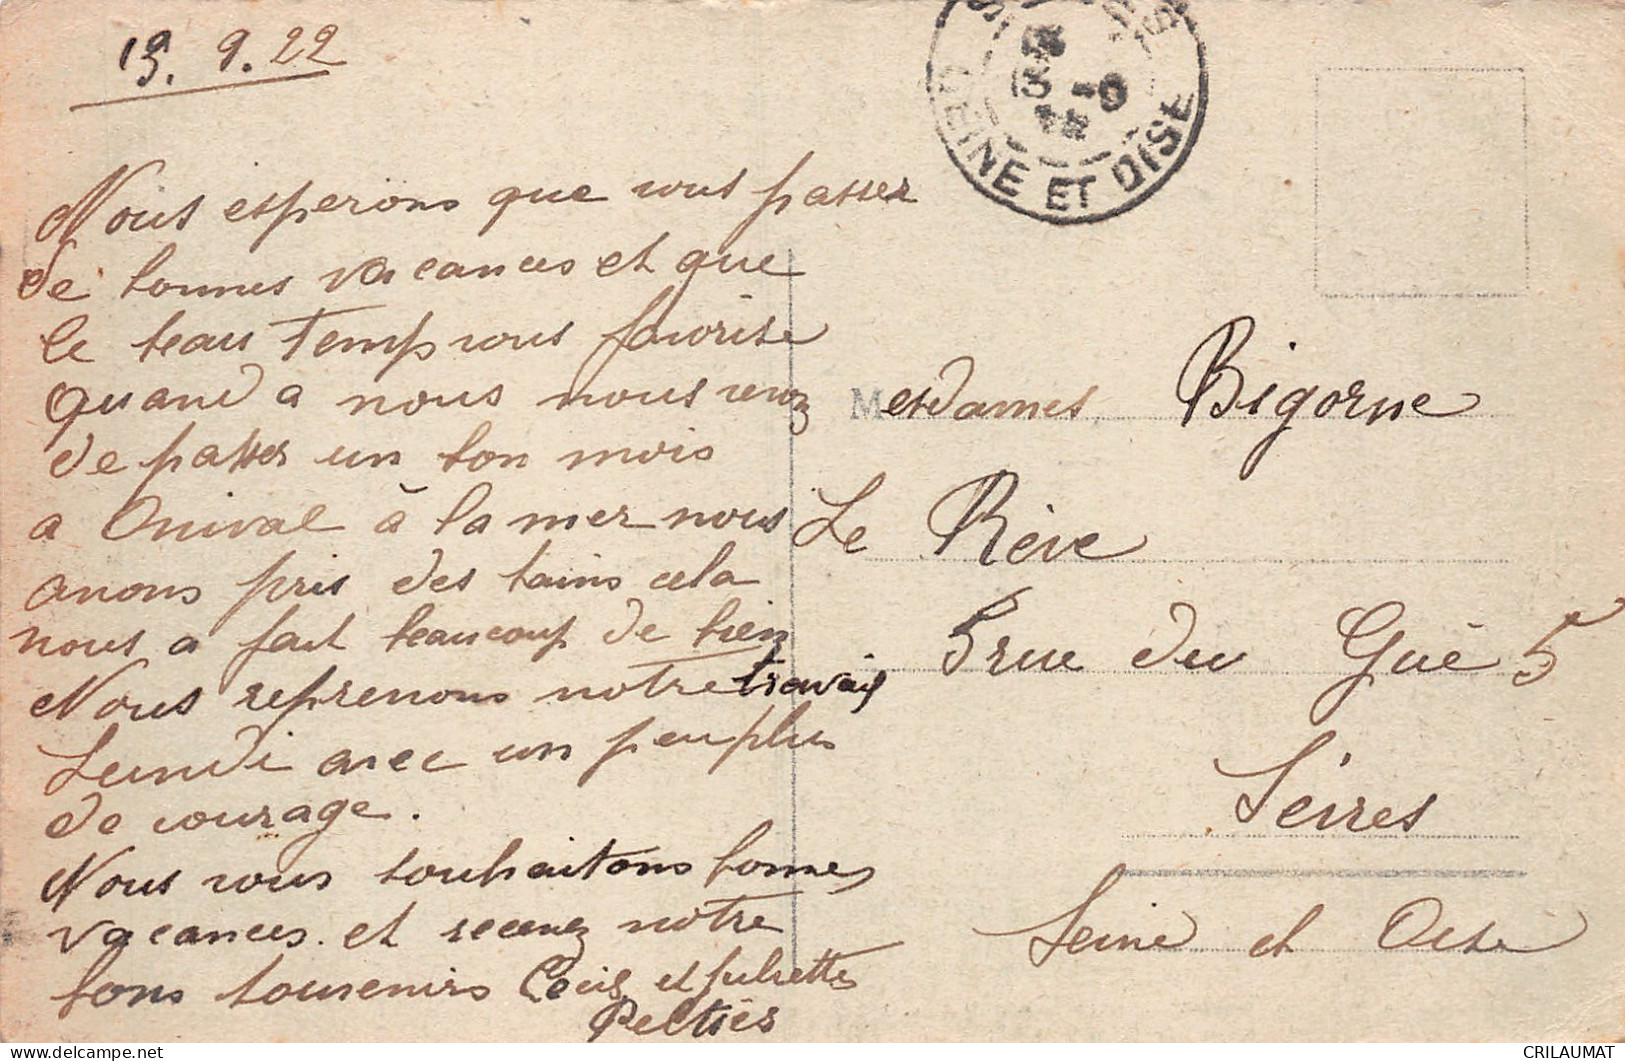 13. 9. 22
Nous esperons que vous passez
de bonnes vacances et que
le beau Temps vous favorise
quand a nous nous venoz
de passer un bon mois
a Onival à la mer nous
avons pris des bains cela
nous a fait beaucoup de bien
Nous reprenons notre travail
Lundi avec un peu plus
de courage.
Nous vous souhaitons bonnes
vacances et recevez notre
bons souvenirs Cecile et Juliette
Peltier
SEINE ET OISE
Mesdames Bigorne
Le Rêve
5 rue du Gué 5
Sèvres
Seine et Oise
CRILAUMAT